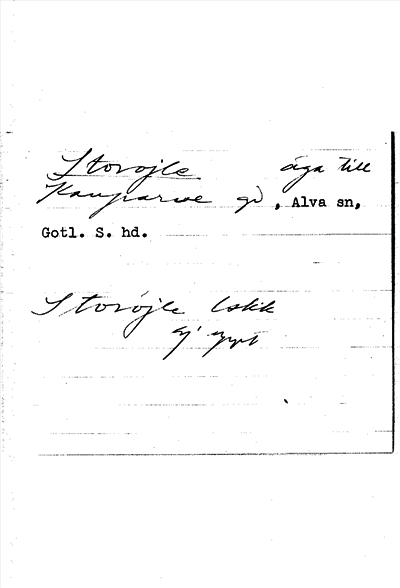 Storöjle äga till
Kauparve gd, Alva sn,
Gotl. S. hd.
Storöjle lokk
ej uppt